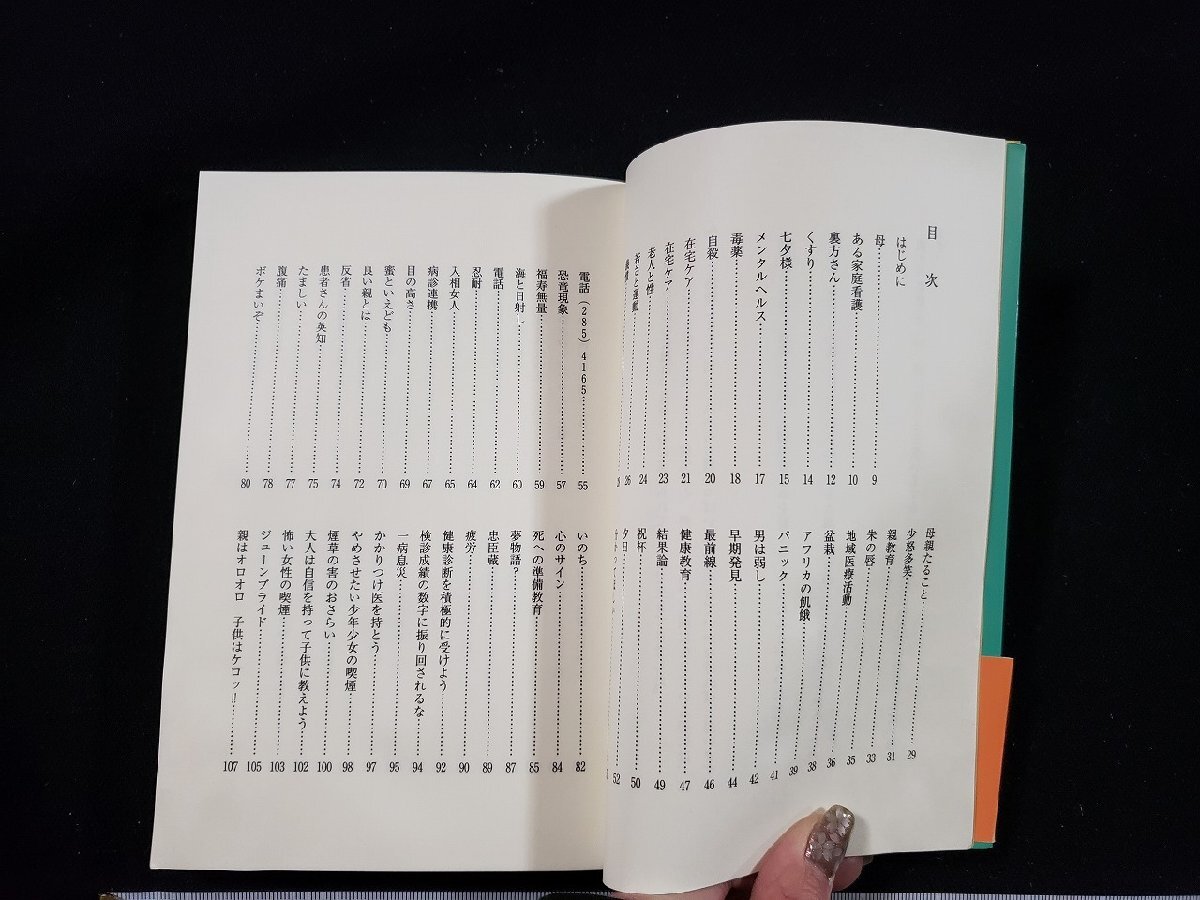 目次
はじめに
母…………9
ある家庭看護…………10
裏方さん…………12
くすり…………14
七夕様…………15
メンタルヘルス…………17
毒薬…………18
自殺…………20
在宅ケア…………21
在宅ケア…………23
老人と性…………24
若さと運動…………26
母親たること…………29
少怒多笑…………31
親教育…………33
朱の唇…………35
地域医療活動…………36
盆栽…………38
アフリカの飢餓…………39
パニック…………41
男は弱し…………42
早期発見…………44
最前線…………46
健康教育…………47
結果論…………49
祝杯…………50
夕日…………52
電話(285)4165…………55
恐竜現象…………57
福寿無量…………59
海と日射し…………60
電話…………62
忍耐…………64
入相女人…………65
病診連携…………67
目の高さ…………69
蜜といえども…………70
良い親とは…………72
反省…………74
患者さんの英知…………75
たましい…………77
腹痛…………78
ボケまいぞ…………80
いのち…………82
心のサイン…………84
死への準備教育…………85
夢物語?…………87
忠臣蔵…………89
疲労…………90
健康診断を積極的に受けよう…………92
検診成績の数字に振り回されるな…………94
一病息災…………95
かかりつけ医を持とう…………97
やめさせたい少年少女の喫煙…………98
煙草の害のおさらい…………100
大人は自信を持って子供に教えよう…………102
怖い女性の喫煙…………103
ジューンブライド…………105
親はオロオロ 子供はケロッ!…………107